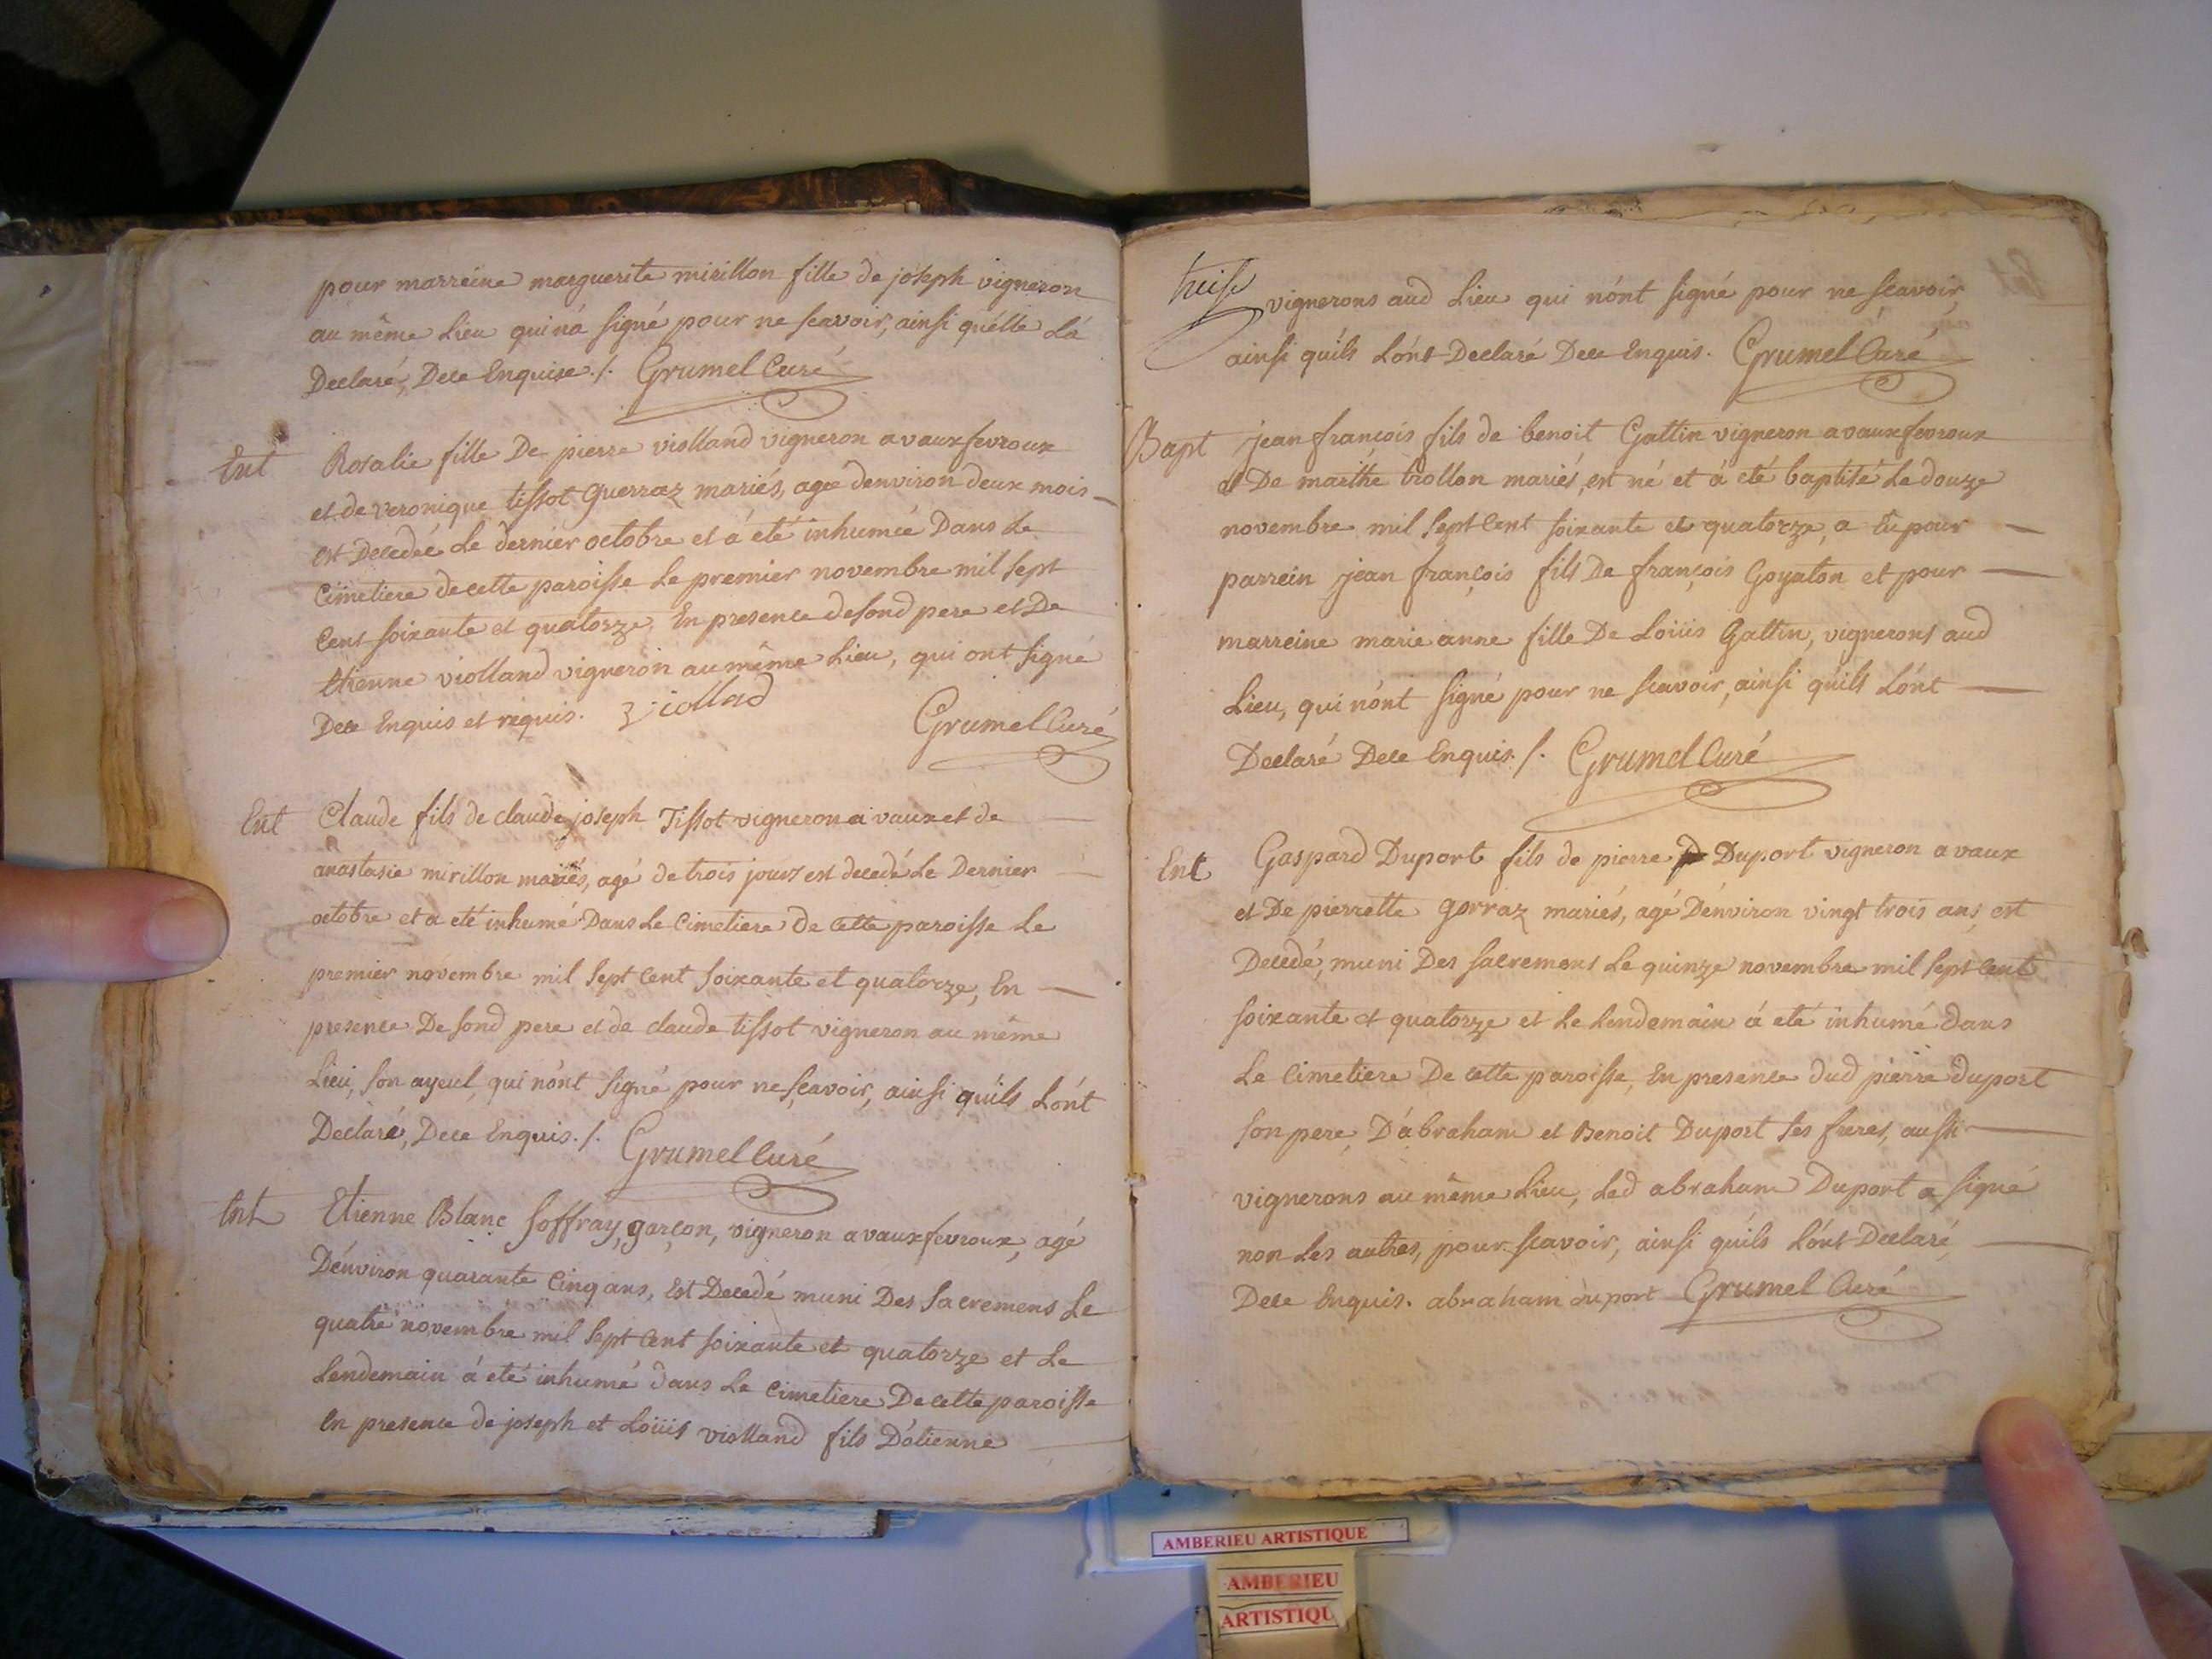 pour marreine marguerite mirillon fille de joseph vigneron
au même Lieu qui ná signé pour ne scavoir, ainsi quélle Lá
Declaré, Dece Enquise ./. Grumel Curé
Ent Rosalie fille De pierre violland vigneron a vauxfevroux
et de veronique tissot Guerraz mariés, agée denviron deux mois
est Decedée Le dernier octobre et á eté inhumée Dans Le
Cimetiere de cette paroisse Le premier novembre mil sept
Cent soixante et quatorze, En presence de sond pere et De
Etienne violland vigneron au même Lieu, qui ont signé
Dece Enquis et requis. viollad Grumel Curé
Ent Claude fils de claude joseph Tissot vigneron a vaux et de
anastasie mirillon mariés, agé de trois jours est decedé Le Dernier
octobre et a eté inhumé Dans Le Cimetiere de cette paroisse Le
premier novembre mil sept Cent soixante et quatorze, En
presence De sond pere et de claude tissot vigneron au même
Lieu, son ayeul, qui nónt signé pour ne scavoir, ainsi quíls Lónt
Declaré, Dece Enquis ./. Grumel Curé
Ent Etienne Blanc Soffray, garçon, vigneron a vauxfevroux, agé
Dénviron quarante Cinq ans, Est Decedé muni Des Sacremens Le
quatre novembre mil sept Cent soixante et quatorze et Le
Lendemain á eté inhumé dans Le Cimetiere De cette paroisse
En presence de joseph et Loüis violland fils Détienne
vignerons aud Lieu qui nónt signé pour ne scavoir,
ainsi quíls Lónt Declaré Dece Enquis. Grumel Curé
Bapt jean françois fils de benoit Gattin vigneron a vauxfevroux
et De marthe trollon mariés, est né et á eté baptisé Le douze
novembre mil sept Cent soixante et quatorze, a Eu pour
parrein jean françois fils De françois Goyaton et pour
marreine marie anne fille De Loüis Gattin, vignerons aud
Lieu, qui nónt signé pour ne scavoir, ainsi quíls Lónt
Declaré Dece Enquis ./. Grumel Curé
Ent Gaspard Duport fils de pierre Duport vigneron a vaux
et De pierrette gorraz mariés, agé Dénviron vingt trois ans, est
Decedé, muni Des sacremens Le quinze novembre mil sept Cent
soixante et quatorze et Le Lendemain á eté inhumé dans
Le Cimetiere De cette paroisse, En presence dud pierre duport
son pere, Dábraham et Benoit Duport ses freres, aussi
vignerons au même Lieu, Led abraham Duport a signé
non Les autres, pour scavoir, ainsi quíls Lónt Declaré
Dece Enquis. abraham duport Grumel Curé
AMBERIEU ARTISTIQUE
AMBERIEU
ARTISTIQU